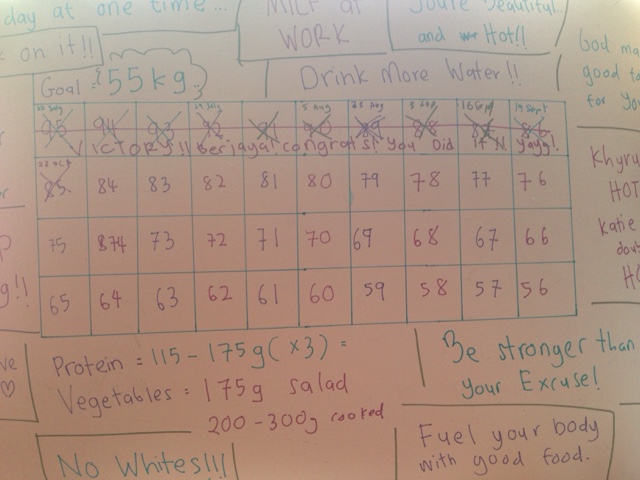 day at one time...
on it!!
MILF at
WORK
You're Beautiful
and Hot!!
God ma
good to
for yo
Goal = 55kg
Drink More Water!!
22 July 29 July 5 Aug 25 Aug 3 Sep 16 Sept 19 Sept
95 94 93 92 91 90 89 88 87 86
VICTORY!! Berjaya! congrats! You Did it N Yayy!
22 Oct
85 84 83 82 81 80 79 78 77 76
75 74 73 72 71 70 69 68 67 66
65 64 63 62 61 60 59 58 57 56
Khyru
HOT
Katie
dow
H
g!!
Protein = 115 - 175g (x3) =
Vegetables = 175g salad
200 - 300g cooked
Be stronger than
your Excuse!
ve
No Whites!!!
Fuel your body
with good food.